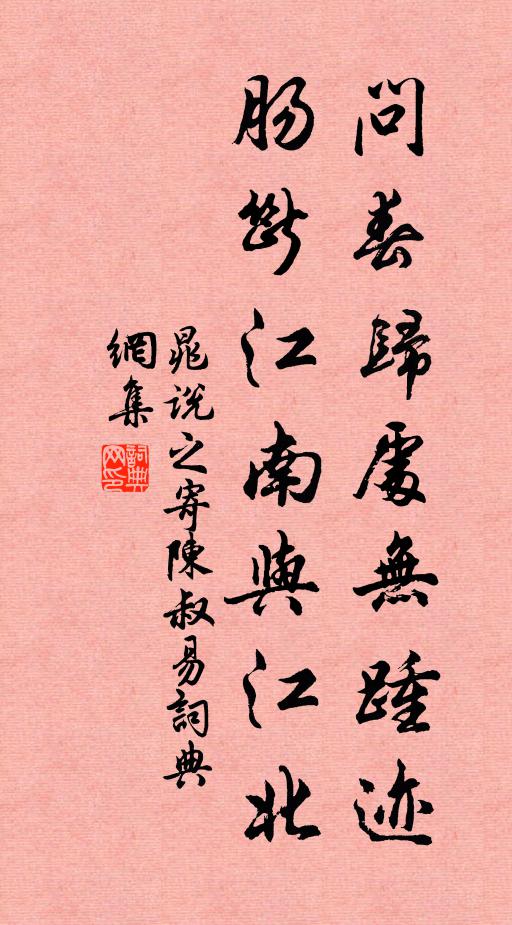 問春歸處無踵迹
腸斷江南與江北
晁說之寄陳叔易詞典
網集
詞典
网印